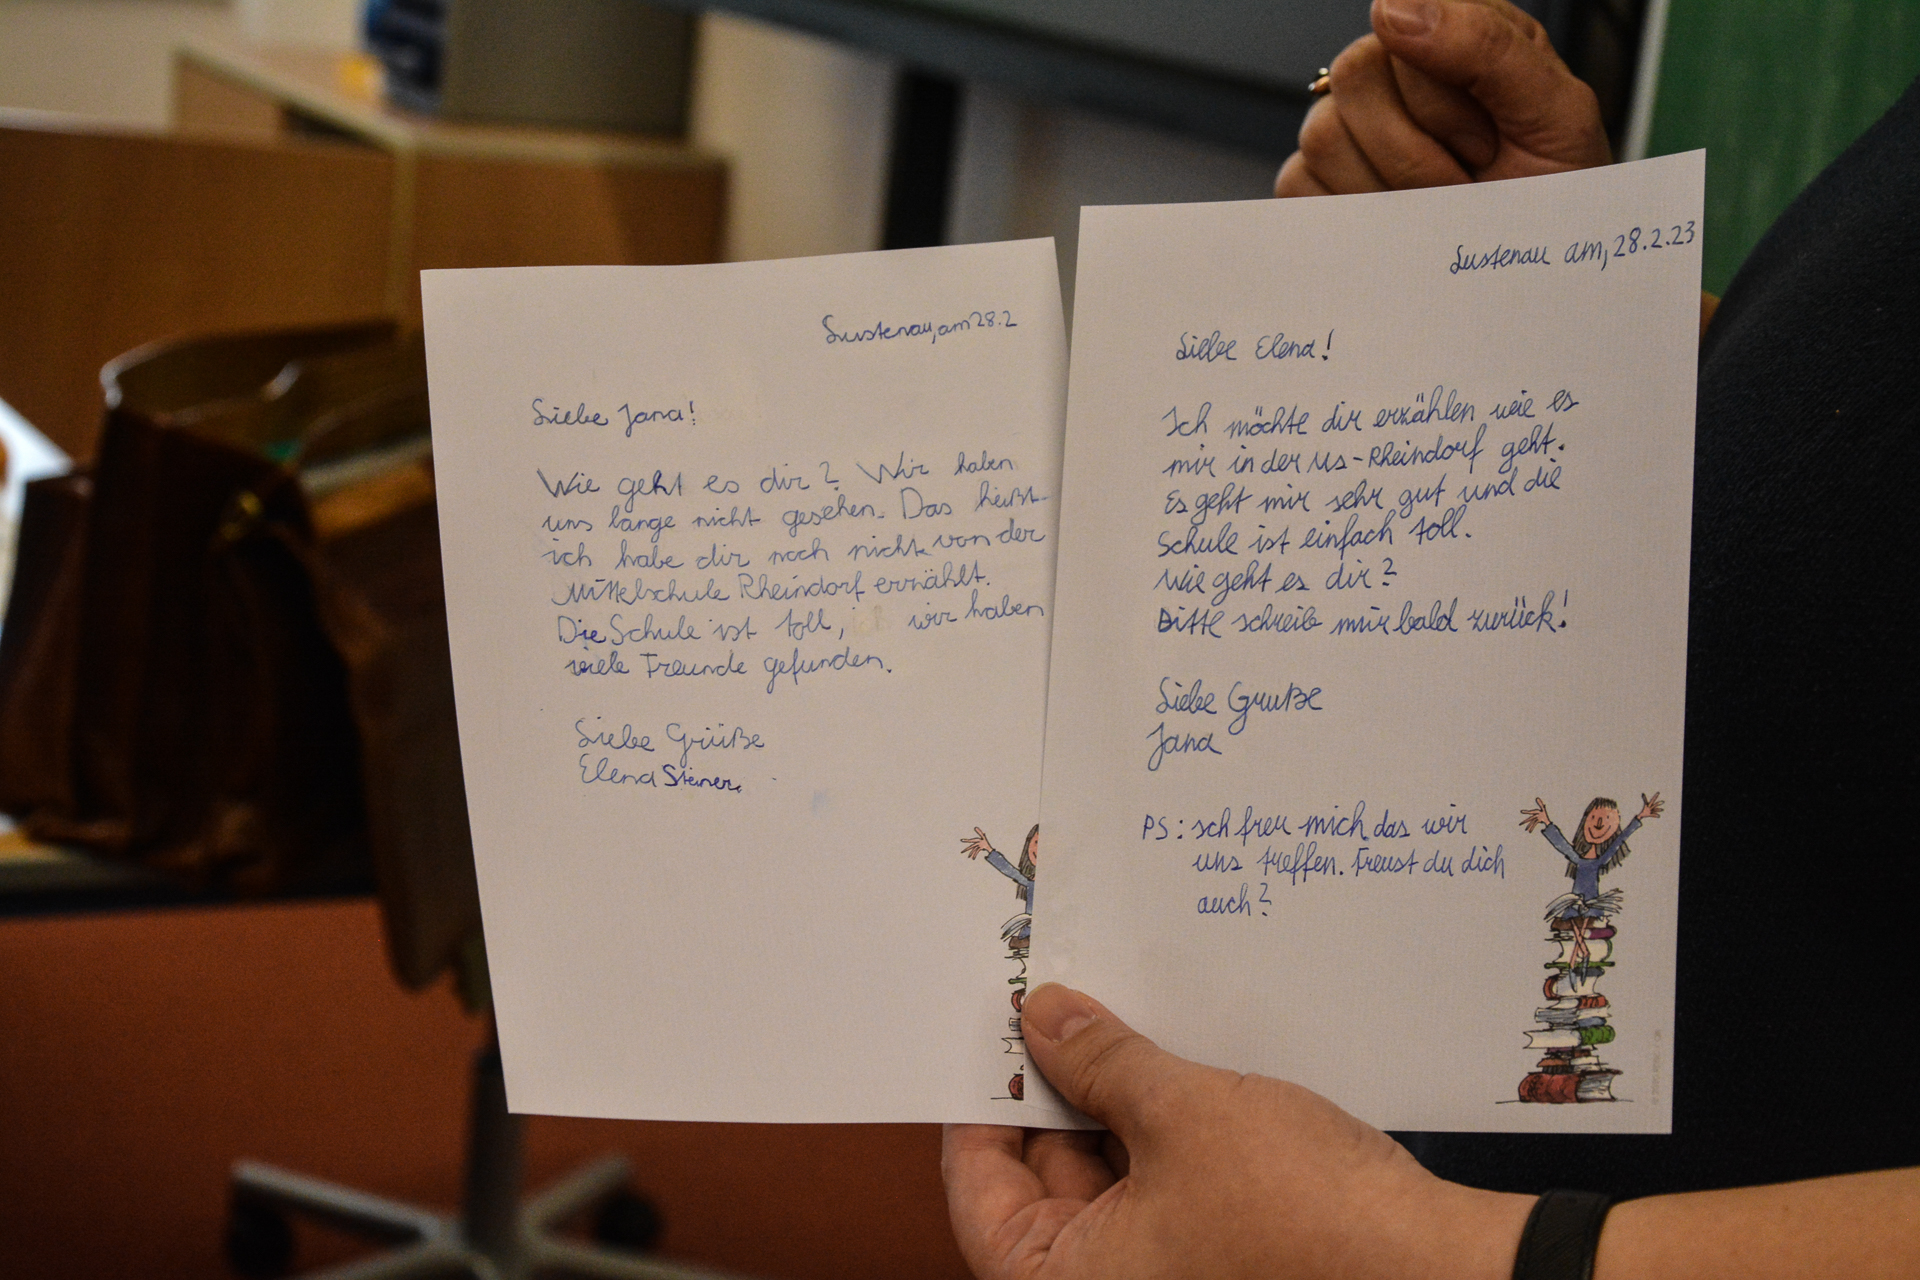 Lustenau, am 28.2
Liebe Jana!
Wie geht es dir? Wir haben
uns lange nicht gesehen. Das heißt
ich habe dir noch nicht von der
Mittelschule Rheindorf erzählt.
Die Schule ist toll, wir haben
viele Freunde gefunden.
Liebe Grüße
Elena Steiner.
Lustenau am, 28.2.23
Liebe Elena!
Ich möchte dir erzählen wie es
mir in der Ms-Rheindorf geht.
Es geht mir sehr gut und die
Schule ist einfach toll.
Wie geht es dir?
Bitte schreib mir bald zurück!
Liebe Gruße
Jana
PS: ich freu mich das wir
uns treffen. Freust du dich
auch?